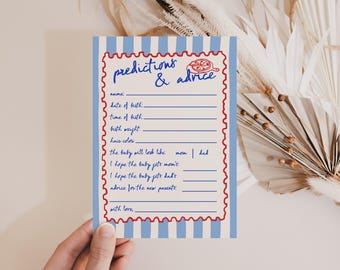 predictions
& advice
name:
date of birth:
time of birth:
birth weight:
hair color:
the baby will look like: mom | dad
I hope the baby gets mom's:
I hope the baby gets dad's:
advice for the new parents:
with love,